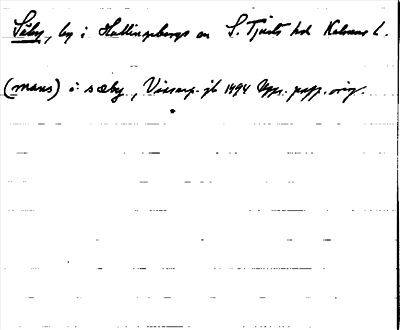 Säby, by i Hallingebergs sn S. Tjusts hd Kalmar l.
(mans) i sæby, Vissarp. jb 1494 Upps. papp. orig.